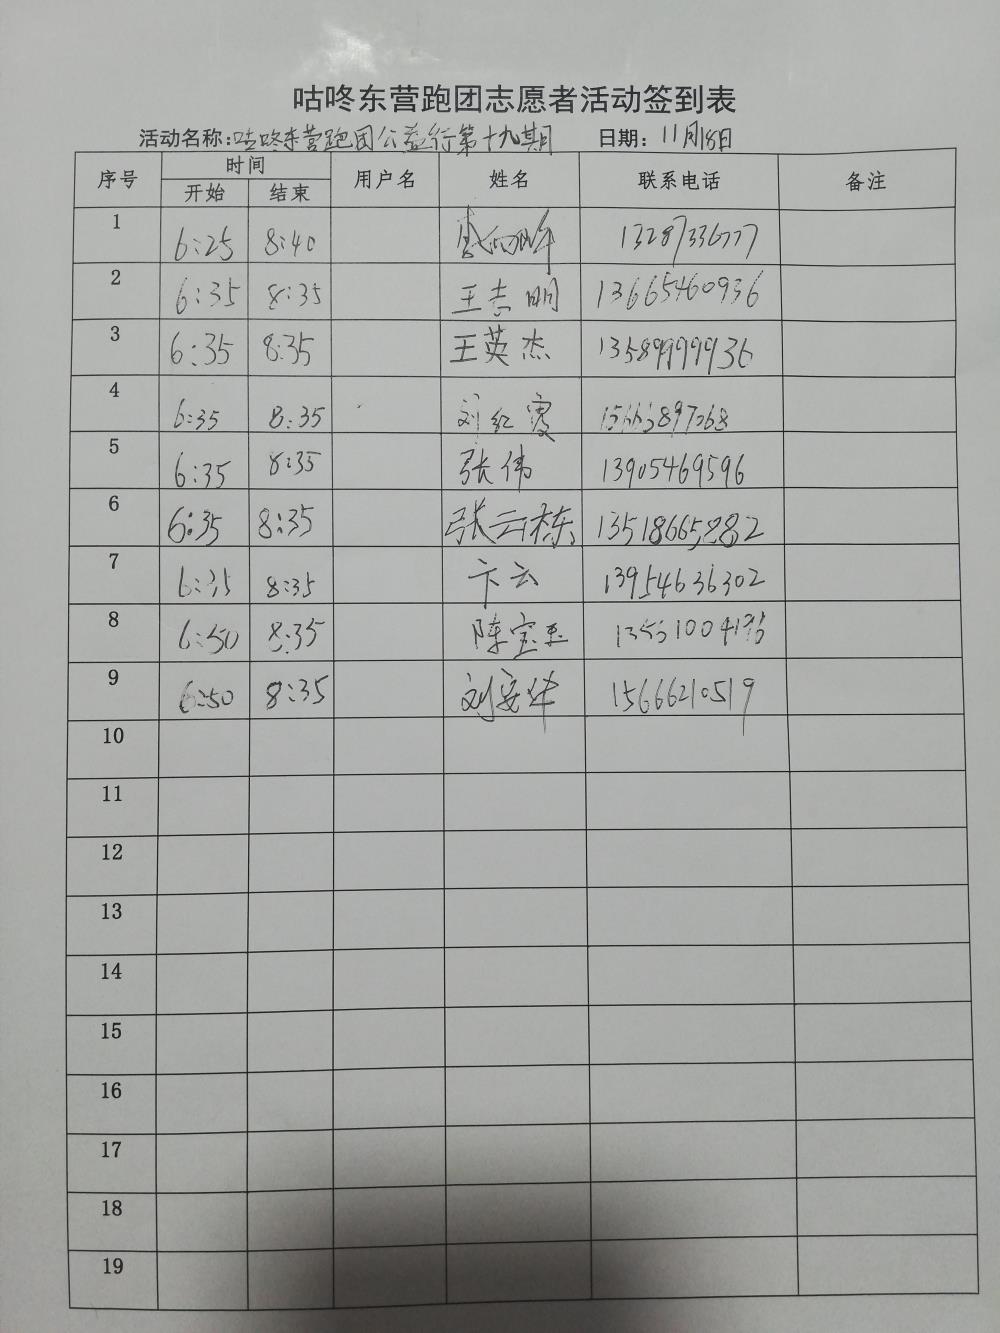 咕咚东营跑团志愿者活动签到表
活动名称:咕咚东营跑团公益行第十九期 日期: 11月18日
序号 时间 用户名 姓名 联系电话 备注
开始 结束
1 6:25 8:40 13287336777
2 6:35 8:35 王志明 13665460936
3 6:35 8:35 王英杰 13589999936
4 6:35 8:35 刘红霞
5 6:35 8:35 张伟 13905469596
6 6:35 8:35 张云栋 13518665882
7 6:35 8:35 卞云 13954636302
8 6:50 8:35 陈宝玉
9 6:50 8:35 刘安华 15666210519
10
11
12
13
14
15
16
17
18
19